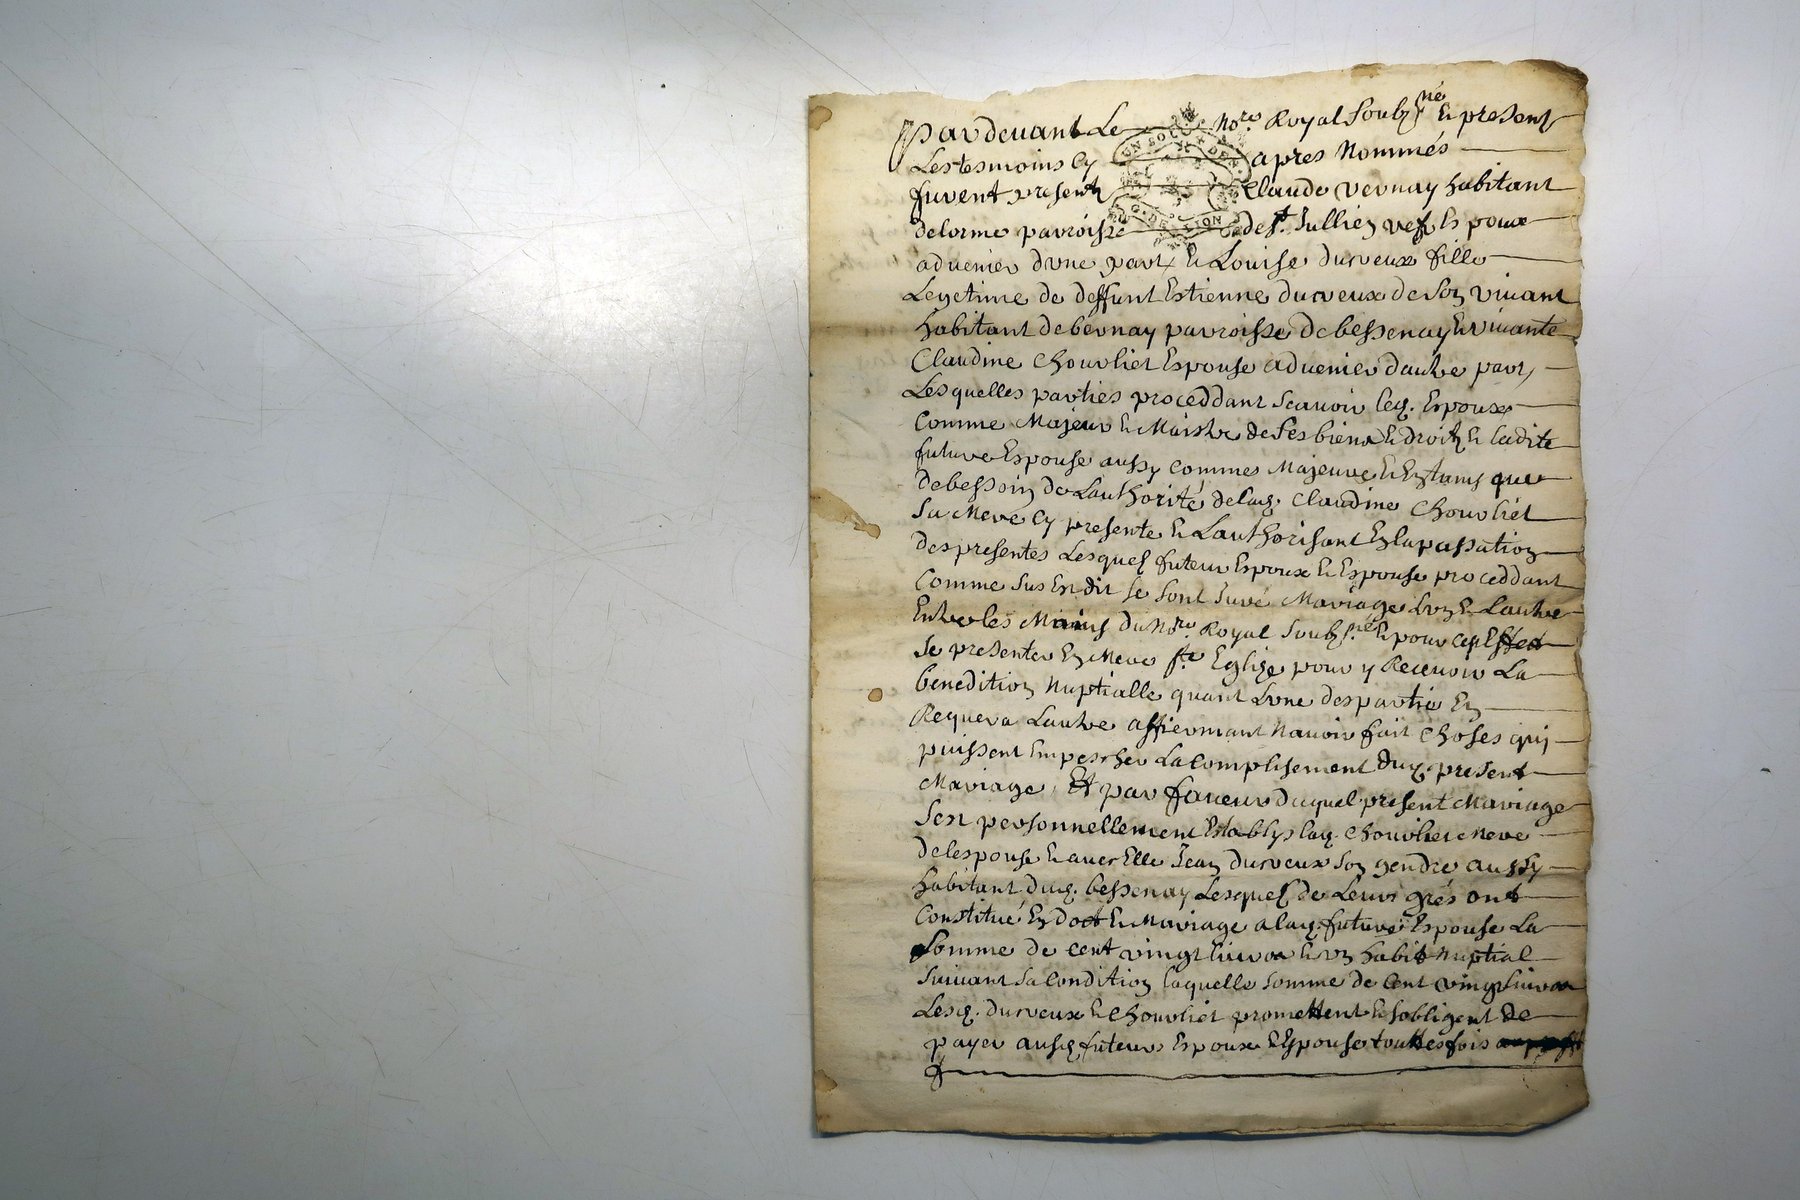 Pardevant Le No.re Royal Soubz.né & present
Les tesmoins Cy apres Nommés
furent presentz Claude Vernay habitant
delorme parroisse de S.t Jullien vef Espoux
advenier dune part & Louise Durveux fille
Legetime de deffunt Estienne durveux de Son vivant
habitant de bernay parroisse de bessenay & vivante
Claudine Chouvliet Espouse advenier dautre part
Lesquelles parties proceddant Scavoir led. Espoux
Comme Majeur & Maistre de Ses biens & droitz & ladite
future Espouse aussy Commes Majeure & En tams que
de bessoin de Lauthorité delad. Claudine Chouvliet
Sa Mere Cy presente & Lauthorisant En la passation
des presentes Lesquelz futeur Espoux & Espouse proceddant
Comme Sus Est dit Se Sont Juré Mariage Lun & Lautre
Entre les Mains du No.re Royal Soubz.né & pour cest Effect
Se presenter En Mere S.te Eglize pour y Recevoir La
benedition Nuptialle quant Lune des partie En
Requera Lautre affiermant Navoir fait Choses qui
puissent Empescher Lacomplisement dud. present
Mariage, Et par faveur duquel present Mariage
Sest personnellement Establys lad. Chouvliet Mere
de lespouse & avec Elle Jean durveux Son gendre aussy
habitant dud. bessenay Lesquelz de Leurs grés ont
Constitué En doct & Mariage a lad. future Espouse La
Somme de Cent vingt Livres & un habit Nuptial
Suivant Sa Condition laquelle Somme de Cent vingt Livres
Lesd. durveux & Chouvliet promettent & Sobligent de
payer ausd. futeurs Espoux & Espouse touttesfois